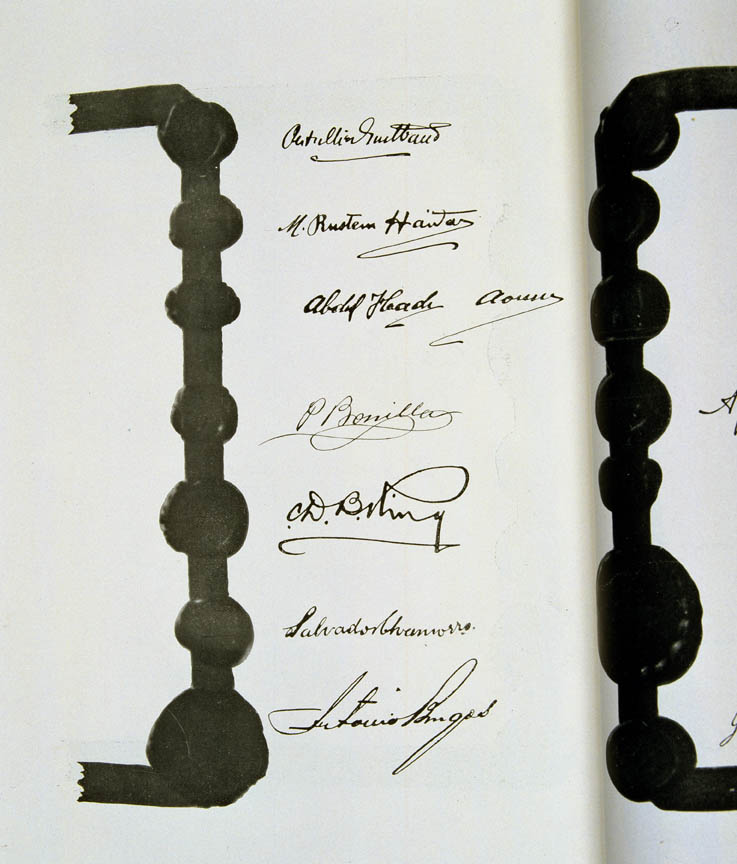 Tertullien Guilbaud
M. Rustem Haïdar
Abdul Hadi Aouni
P Bonilla
C.D.B. King
Salvador Chamorro
Antonio Burgos